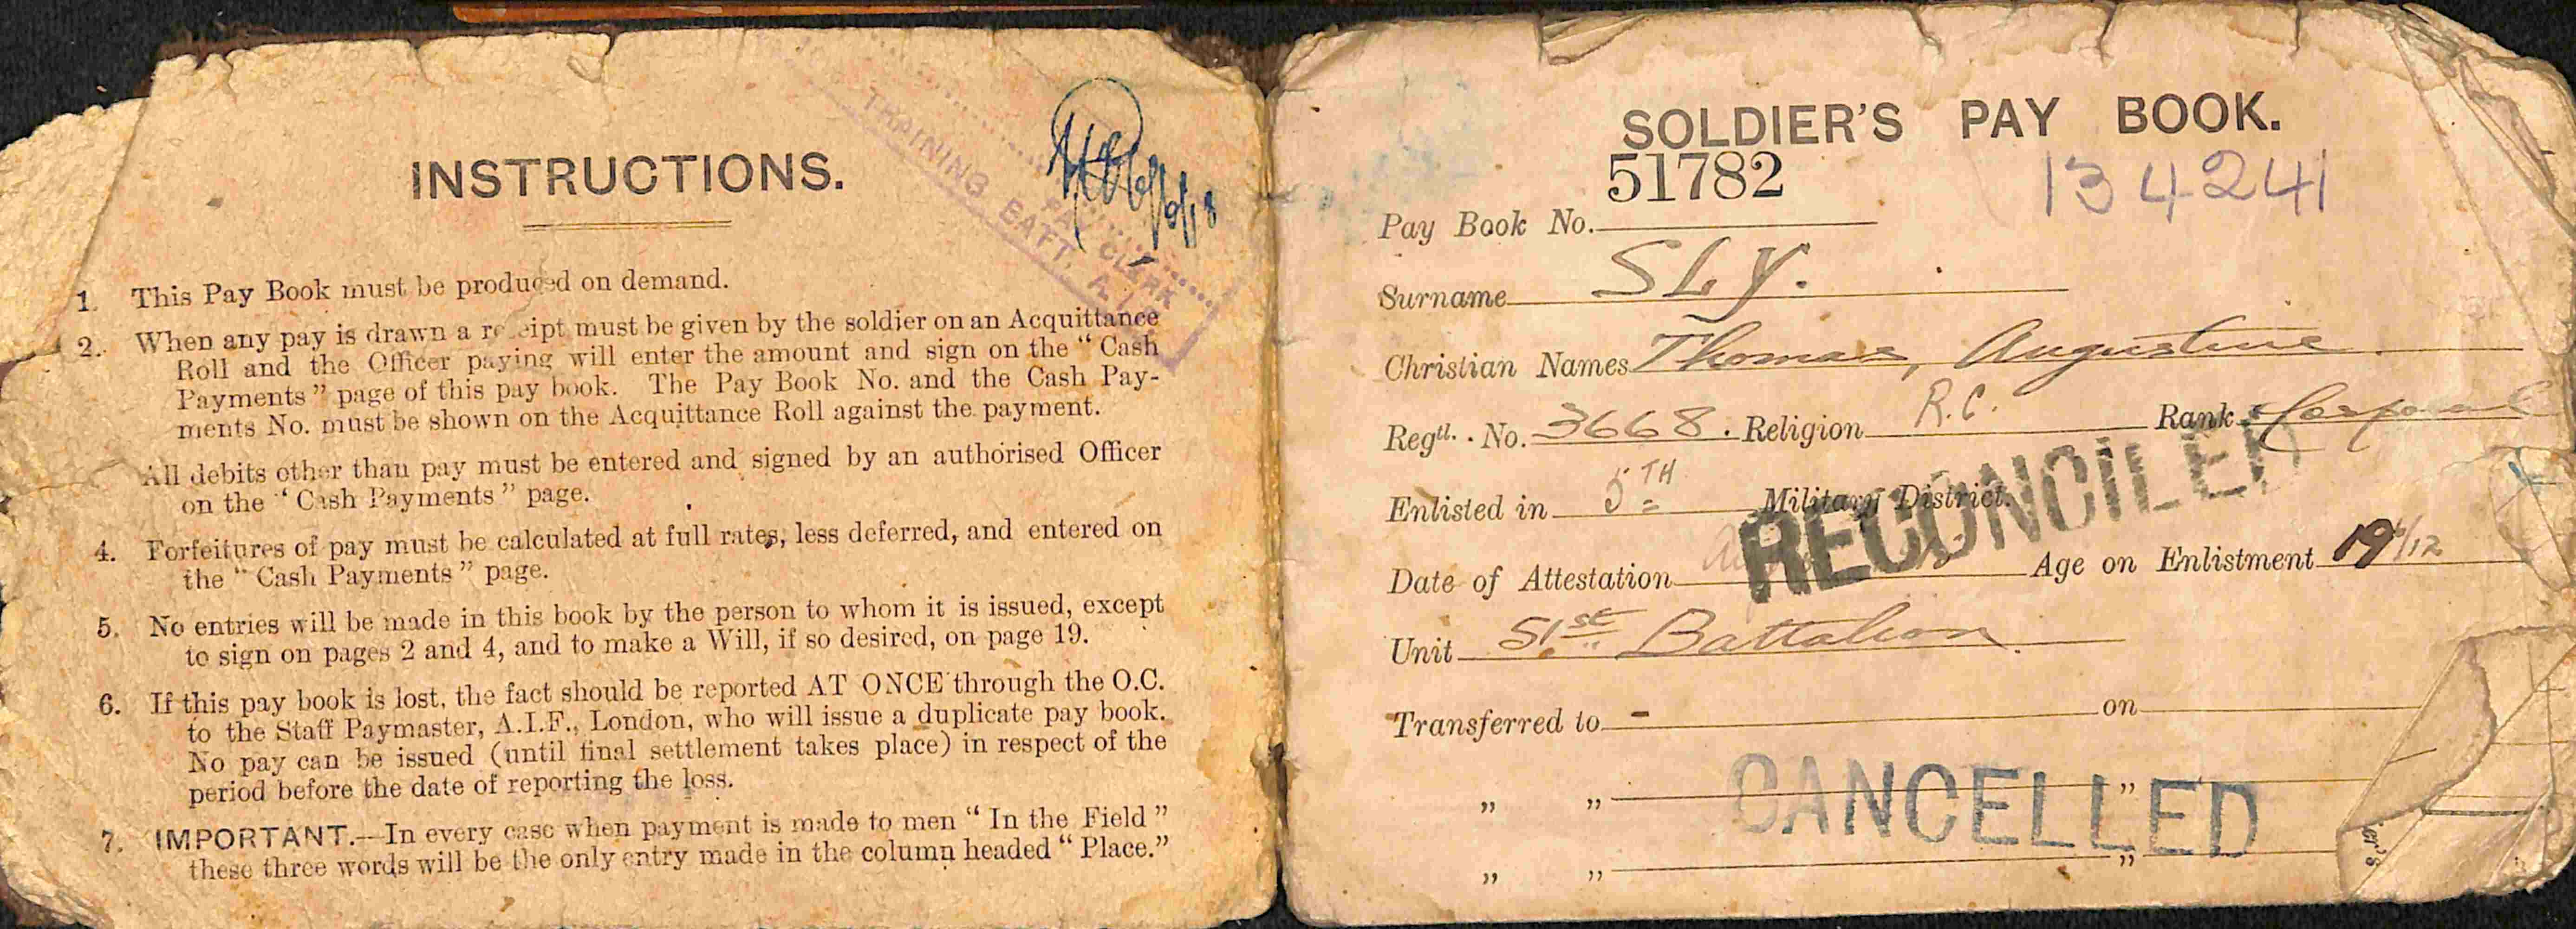 INSTRUCTIONS.
TRAINING BATT. A.I.
PAY CLERK
1. This Pay Book must be produced on demand.
2. When any pay is drawn a receipt must be given by the soldier on an Acquittance
Roll and the Officer paying will enter the amount and sign on the “Cash
Payments” page of this pay book. The Pay Book No. and the Cash Pay-
ments No. must be shown on the Acquittance Roll against the payment.
All debits other than pay must be entered and signed by an authorised Officer
on the “Cash Payments” page.
4. Forfeitures of pay must be calculated at full rates, less deferred, and entered on
the “Cash Payments” page.
5. No entries will be made in this book by the person to whom it is issued, except
to sign on pages 2 and 4, and to make a Will, if so desired, on page 19.
6. If this pay book is lost, the fact should be reported AT ONCE through the O.C.
to the Staff Paymaster, A.I.F., London, who will issue a duplicate pay book.
No pay can be issued (until final settlement takes place) in respect of the
period before the date of reporting the loss.
7. IMPORTANT.—In every case when payment is made to men “In the Field”
these three words will be the only entry made in the column headed “Place.”
SOLDIER'S PAY BOOK.
134241
Pay Book No. 51782
Surname SLY.
Christian Names Thomas, Augustine
Regtl. No. 3668. Religion R.C. Rank Corporal
Enlisted in 5TH Military District.
RECONCILED
Date of Attestation Age on Enlistment 19
Unit 51st Battalion
Transferred to - on
„ „ „
CANCELLED
„ „ „
er's